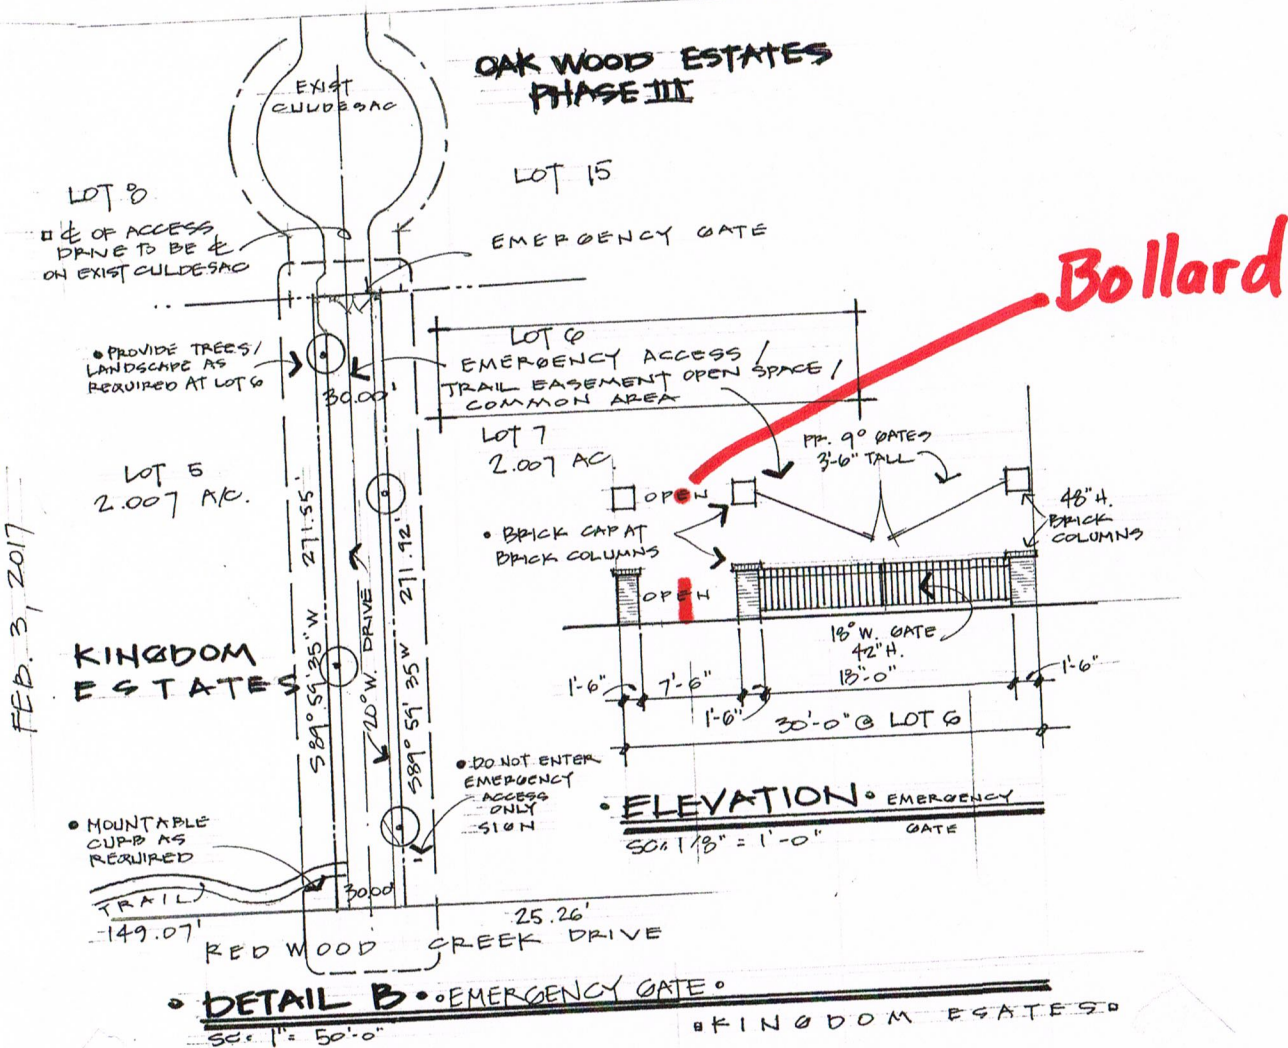 OAK WOOD ESTATES
PHASE III
EXIST
CULDESAC
LOT 8
LOT 15
℄ OF ACCESS
DRIVE TO BE ℄
ON EXIST CULDESAC
EMERGENCY GATE
Bollard
• PROVIDE TREES/
LANDSCAPE AS
REQUIRED AT LOT 6
30.00'
LOT 6
EMERGENCY ACCESS /
TRAIL EASEMENT OPEN SPACE /
COMMON AREA
LOT 7
2.007 AC.
LOT 5
2.007 A/C.
PR. 9° GATES
3'-6" TALL
OPEN
48" H.
BRICK
COLUMNS
• BRICK CAP AT
BRICK COLUMNS
OPEN
18° W. GATE
42" H.
18'-0"
1'-6"
7'-6"
1'-6"
1'-6"
30'-0" @ LOT 6
FEB. 3, 2017
KINGDOM
ESTATES
S89° 59' 35" W 271.55'
20° W. DRIVE
S89° 59' 35 W 271.92'
• DO NOT ENTER
EMERGENCY
ACCESS
ONLY
SIGN
• ELEVATION • EMERGENCY
GATE
SC: 1/8" = 1'-0"
• MOUNTABLE
CURB AS
REQUIRED
TRAIL
30.00'
149.07'
25.26'
REDWOOD CREEK DRIVE
• DETAIL B • EMERGENCY GATE •
SC: 1" = 50'-0"
KINGDOM ESATES